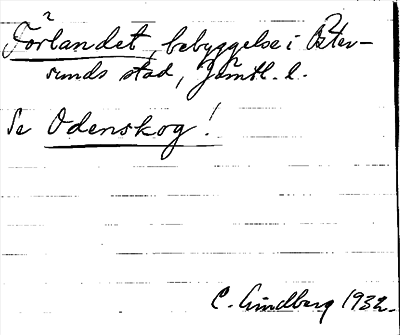 Torlandet, bebyggelse i Öster-
sunds stad, Jämtl. l.
Se Odenskog!
C. Lindberg 1932.